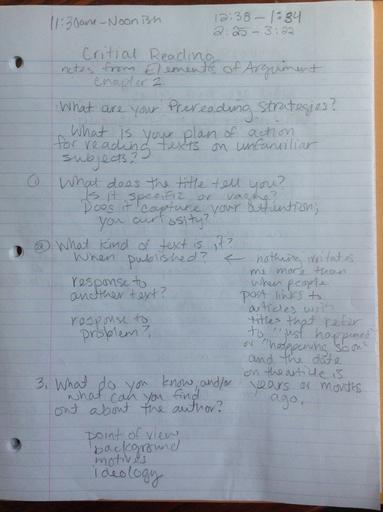 11:30am - Noonish
12:38 - 1:34
2:25 - 3:22
Critial Reading
notes from Elements of Argument
Chapter 2
What are your Prereading Strategies?
What is your plan of action
for reading texts on unfamiliar
subjects?
1 What does the title tell you?
Is it specific or vague?
Does it capture your attention,
your curiosity?
2 What kind of text is it?
When published? ←
response to
another text?
response to
problem?
nothing irritates
me more than
when people
post links to
articles with
titles that refer
to "just happened"
or "happening soon"
and the date
on the article is
years or months
ago.
3. What do you know, and/or
what can you find
out about the author?
point of view
background
motives
ideology